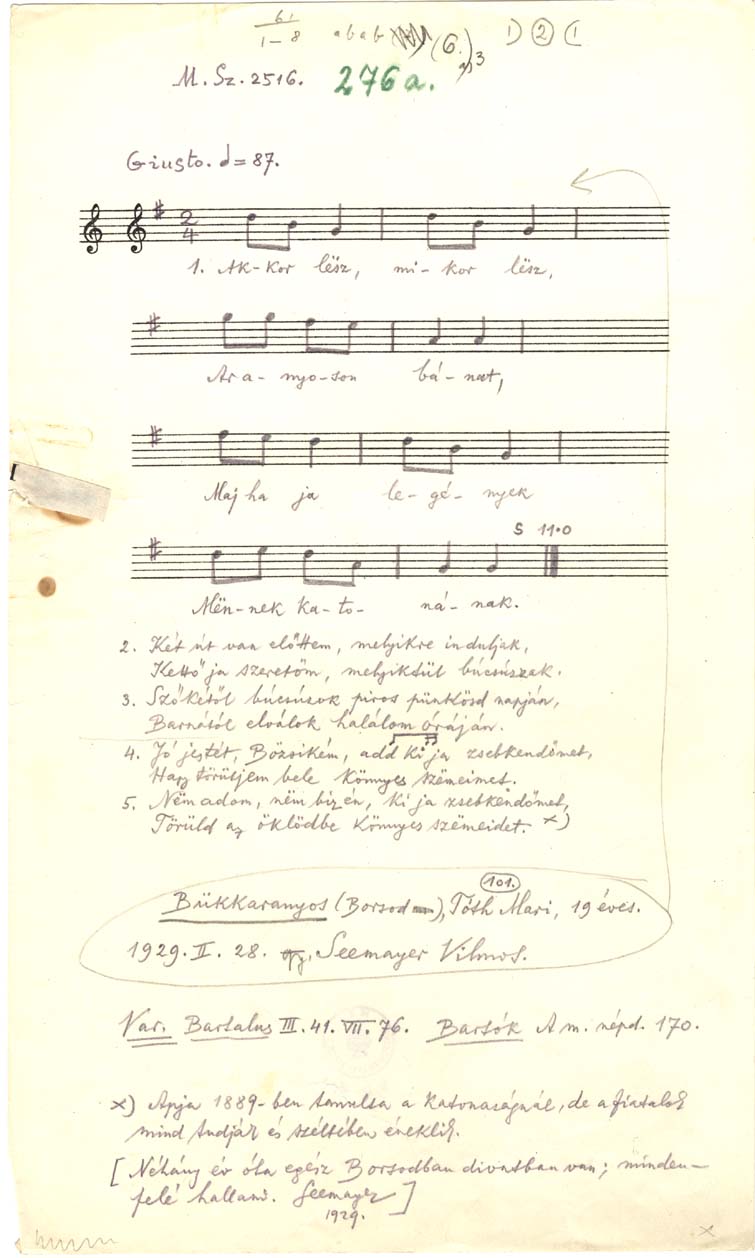 61
1–8 abab (6.) 1) 2 (1
3
M. Sz. 2516. 276a.
Giusto. = 87.
2
4
1. Ak-kor lësz, mi-kor lësz,
Ara-nyo-son bá-nat,
Maj ha ja le-gé-nyek
S 11.0
Mën-nek ka-to-ná-nak.
2. Két út van előttem, melyikre induljak,
Kettő ja szeretőm, melyiktül búcsúzzak.
3. Szőkétől búcsúzok piros pünkösd napján,
Barnától elválok halálom óráján.
4. Jó jestét, Bözsikém, add ki ja zsebkendőmet,
Hagy törütjem bele könnyes szëmeimet.
5. Nëm adom, nëm biz én, ki ja zsebkendőmet,
Törüld az öklödbe könnyes szëmeidet. x)
101.
Bükkaranyos (Borsod), Tóth Mari, 19 éves.
1929. II. 28. Seemayer Vilmos.
Var. Bartalus III. 41. VII. 76. Bartók A m. népd. 170.
x) Apja 1889-ben tanulta a katonaságnál, de a fiatalok
mind tudják és széltében éneklik.
[Néhány év óta egész Borsodban divatban van; minden-
felé hallani. Seemayer]
1929.
x